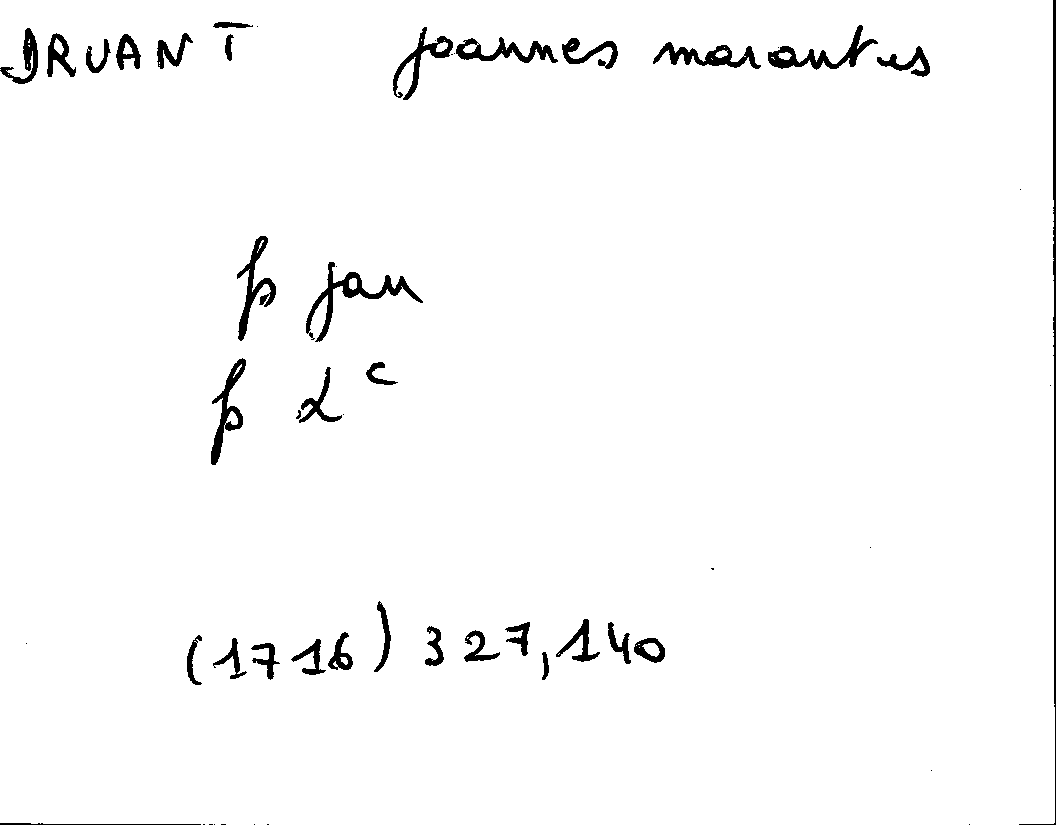 DRUANT joannes marantus
p jan
p Lc
(1716) 327,140